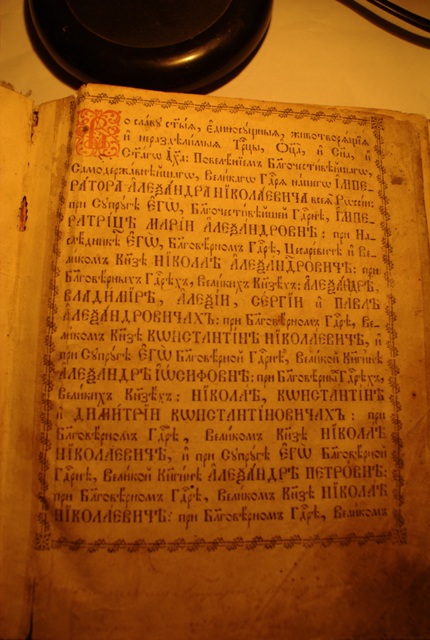 Во славу ст҃ыѧ, є҆диносꙋ́щныѧ, животворѧ́щїѧ
и҆ нераздѣ́лимыѧ Трⷪ҇цы, Ѻ҆ц҃а̀, и҆ Сн҃а, и҆
Ст҃а́гѡ Дх҃а: Повелѣ́нїемъ Благочести́вѣйшагѡ,
Самодержа́внѣйшагѡ, Вели́кагѡ Гдⷭ҇рѧ на́шегѡ І҆МПЕ-
РА́ТОРА А҆ЛЕѮА́НДРА НІКОЛА́ЕВИЧА всеѧ̀ Рѡссі́и:
при Сꙋпрꙋ́гѣ Є҆ГѠ̀, Благочести́вѣйшей Гдⷭ҇рнѣ, І҆МПЕ-
РА́ТРІЦѢ МАРІ́И А҆ЛЕѮА́НДРОВНѢ: при На-
слѣ́дникѣ Є҆ГѠ̀, Благовѣ́рномъ Гдⷭ҇рѣ, Цесаре́вичѣ и҆ Ве-
ли́комъ Кнѧ́зѣ НІКОЛА́Ѣ А҆ЛЕѮА́НДРОВИЧѢ: при
Благовѣ́рныхъ Гдⷭ҇рѣхъ, Вели́кихъ Кнѧ́зѣхъ: А҆ЛЕѮА́НДРѢ,
ВЛАДИ́МІРѢ, А҆ЛЕѮІ́И, СЕ́РГІИ и҆ ПА́ѴЛѢ
А҆ЛЕѮА́НДРОВИЧАХЪ: при Благовѣ́рномъ Гдⷭ҇рѣ, Ве-
ли́комъ Кнѧ́зѣ КѠНСТАНТІ́НѢ НІКОЛА́ЕВИЧѢ, и҆
при Сꙋпрꙋ́гѣ Є҆ГѠ̀ Благовѣ́рной Гдⷭ҇рнѣ, Вели́кой Кнѧги́нѣ
А҆ЛЕѮА́НДРѢ І҆Ѡ́СИФОВНѢ: при Благовѣ́рныхъ Гдⷭ҇рѣхъ,
Вели́кихъ Кнѧ́зѣхъ: НІКОЛА́Ѣ, КѠНСТАНТІ́НѢ
и҆ ДИМИ́ТРІИ КѠНСТАНТІ́НОВИЧАХЪ: при
Благовѣ́рномъ Гдⷭ҇рѣ, Вели́комъ Кнѧ́зѣ НІКОЛА́Ѣ
НІКОЛА́ЕВИЧѢ, и҆ при Сꙋпрꙋ́гѣ Є҆ГѠ̀ Благовѣ́рной
Гдⷭ҇рнѣ, Вели́кой Кнѧги́нѣ А҆ЛЕѮА́НДРѢ ПЕТРО́ВНѢ:
при Благовѣ́рномъ Гдⷭ҇рѣ, Вели́комъ Кнѧ́зѣ НІКОЛА́Ѣ
НІКОЛА́ЕВИЧѢ: при Благовѣ́рномъ Гдⷭ҇рѣ, Вели́комъ